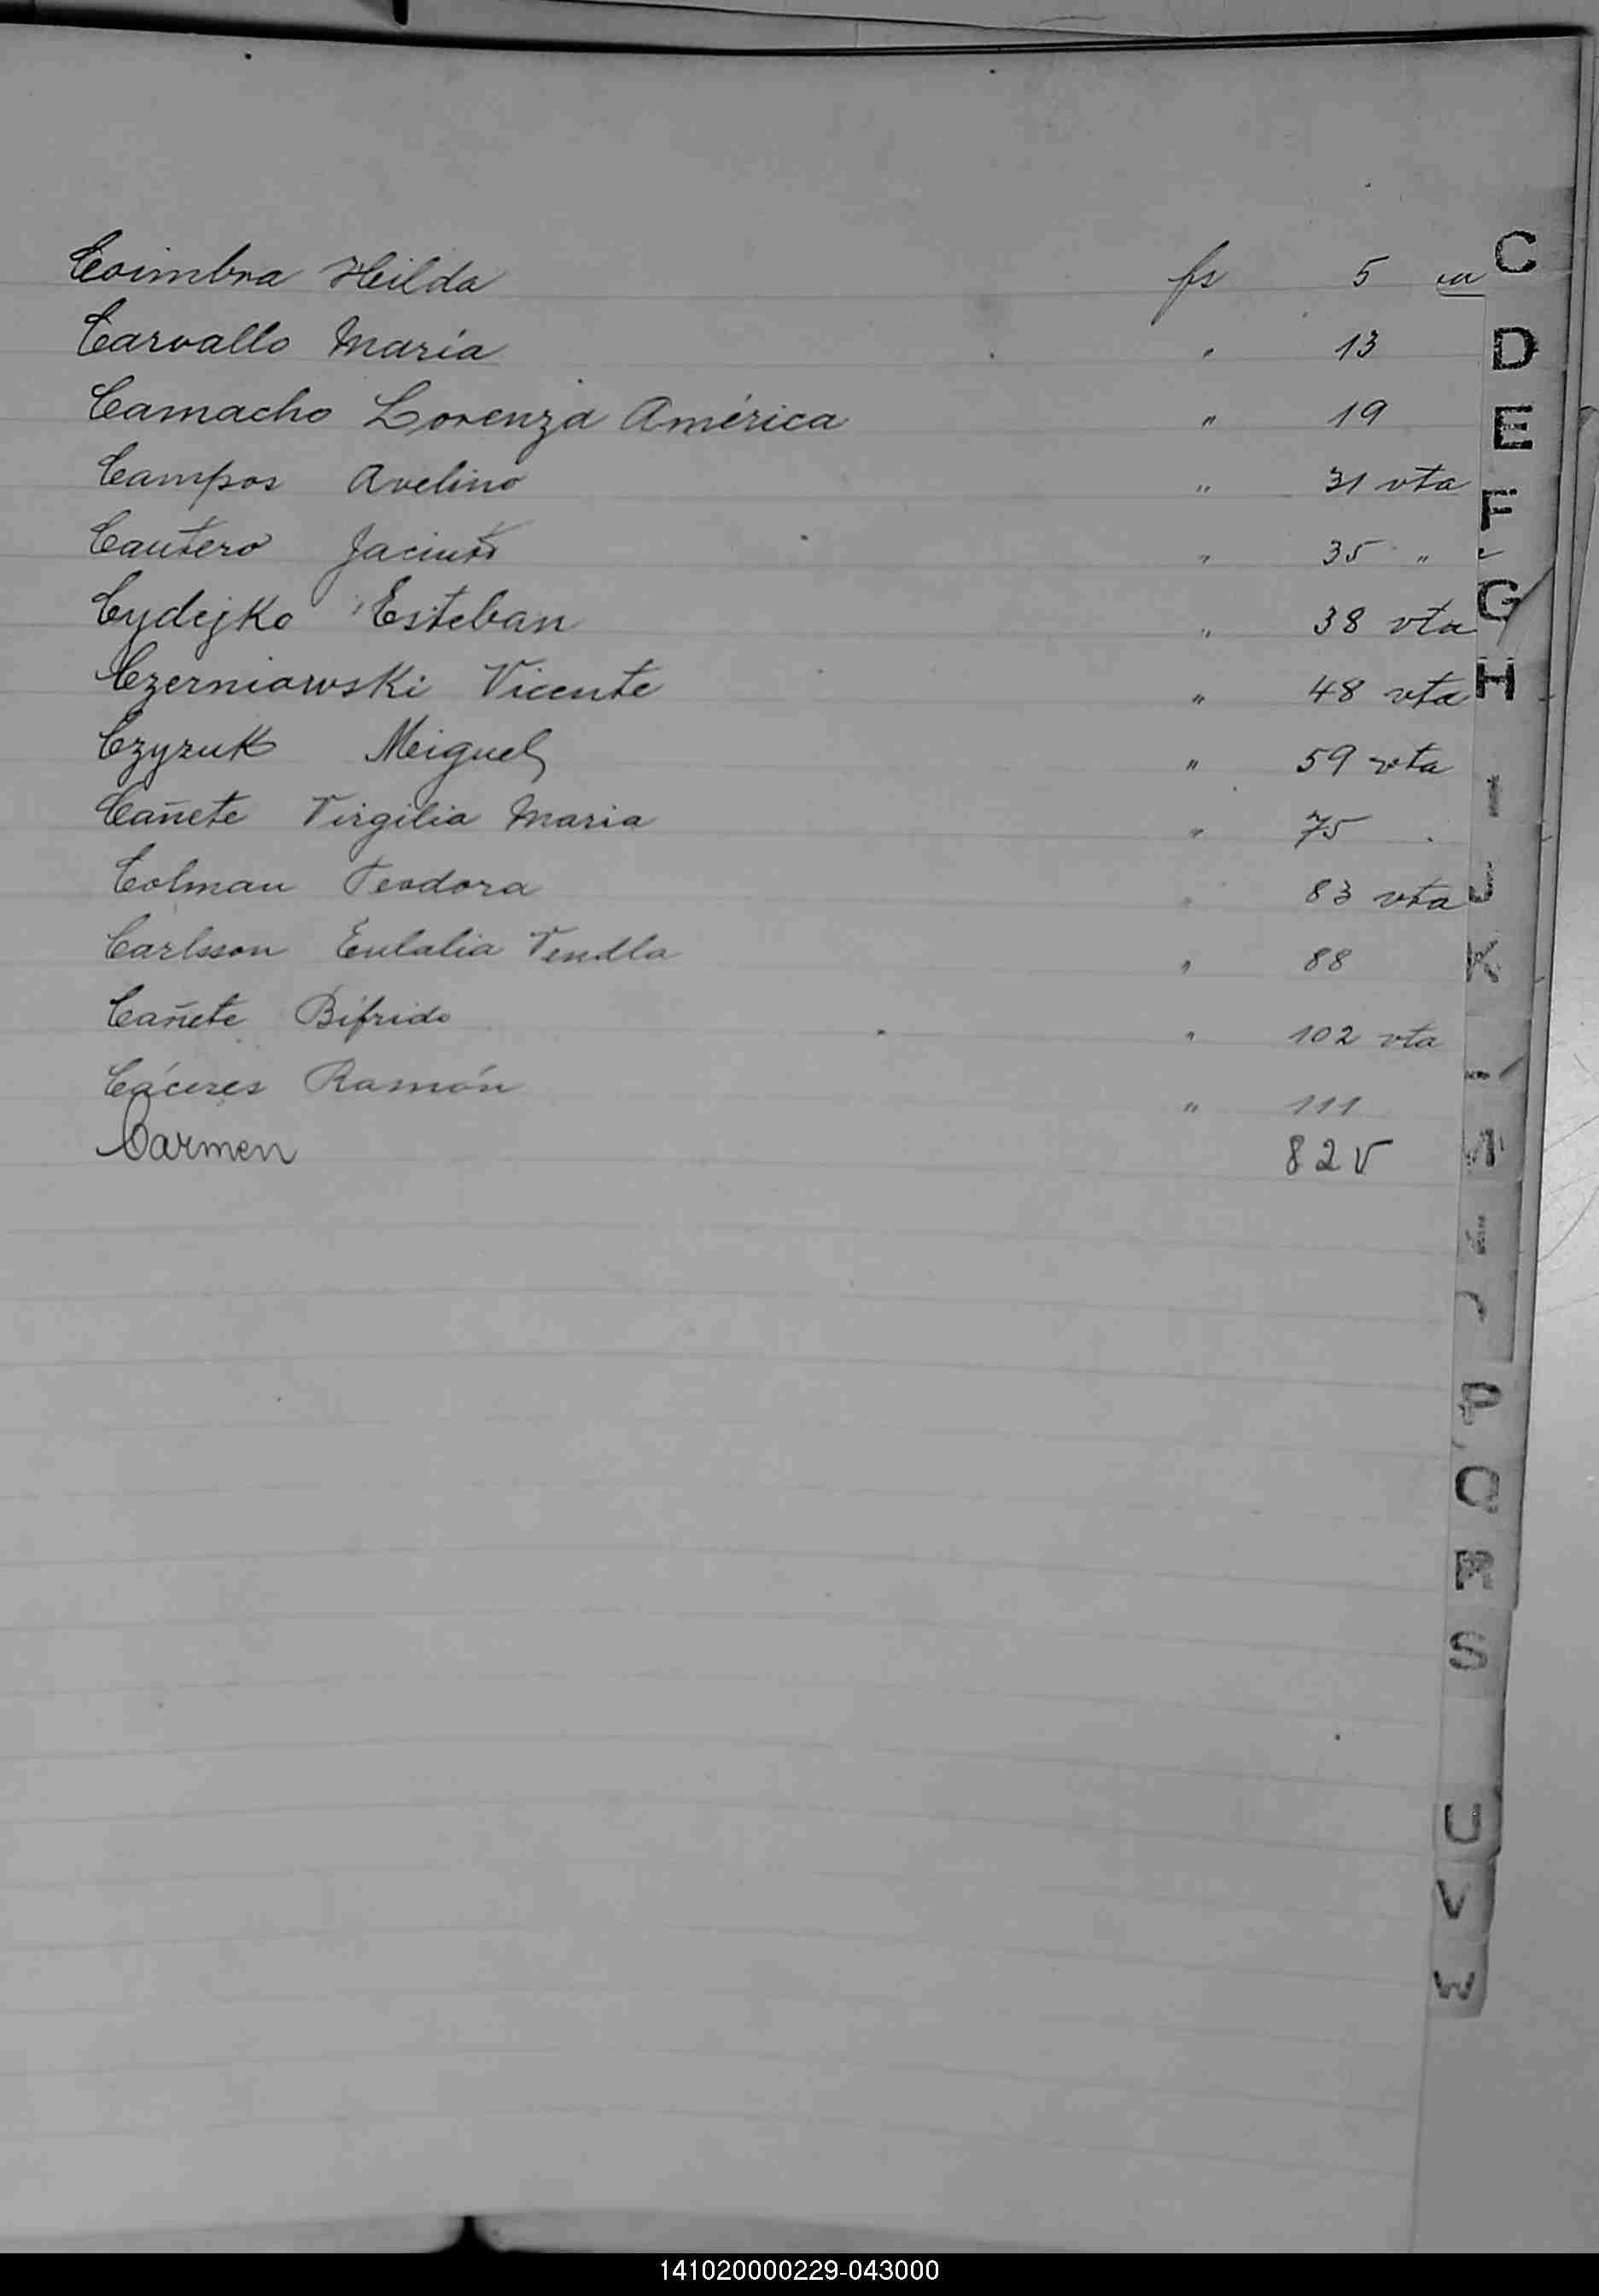 Coimbra Hilda fs 5
C
Carvallo María " 13
D
Camacho Lorenza América " 19
E
Campos Avelino " 31 vta
F
Cautero Jacinto " 35 "
Cydejko Esteban " 38 vta
G
Czerniowski Vicente " 48 vta
H
Czyzuk Miguel " 59 vta
I
Cañete Virgilia Maria " 75
Colman Teodora " 83 vta
J
Carlsson Eulalia " 88
K
Cañete " 102 vta
Cáceres Ramón " 111
Carmen 82 v
P
Q
R
S
U
V
W
141020000229-043000